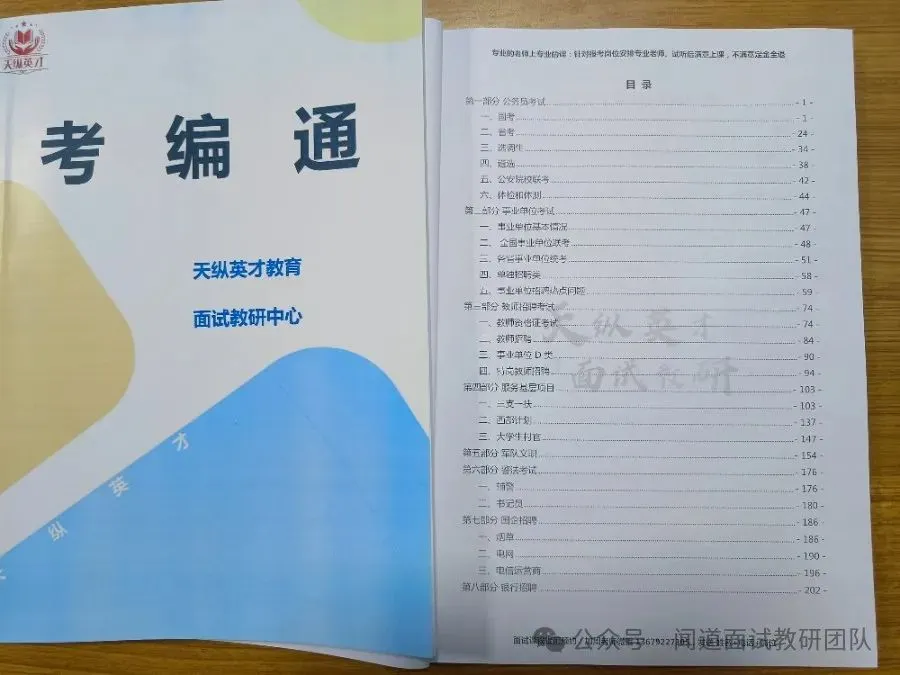 天纵英才
考 编 通
天纵英才教育
面试教研中心
纵 英 才
专业的老师上专业的课：针对报考岗位安排专业老师，试听后满意上课，不满意定金全退
目 录
第一部分 公务员考试 - 1 -
一、国考 - 1 -
二、省考 - 24 -
三、选调生 - 34 -
四、遴选 - 38 -
五、公安院校联考 - 42 -
六、体检和体测 - 44 -
第二部分 事业单位考试 - 47 -
一、事业单位基本情况 - 47 -
二、全国事业单位联考 - 48 -
三、各省事业单位统考 - 51 -
四、单独招聘类 - 58 -
五、事业单位招聘热点问题 - 59 -
第三部分 教师招聘考试 - 74 -
一、教师资格证考试 - 74 -
二、教师招聘 - 84 -
三、事业单位 D 类 - 90 -
四、特岗教师招聘 - 94 -
第四部分 服务基层项目 - 103 -
一、三支一扶 - 103 -
二、西部计划 - 137 -
三、大学生村官 - 147 -
第五部分 军队文职 - 154 -
第六部分 省法考试 - 176 -
一、辅警 - 176 -
二、书记员 - 180 -
第七部分 国企招聘 - 186 -
一、烟草 - 186 -
二、电网 - 190 -
三、电信运营商 - 196 -
第八部分 银行招聘 - 202 -
天纵英才
面试教研
面试课程
公众号 闻道面试教研团队